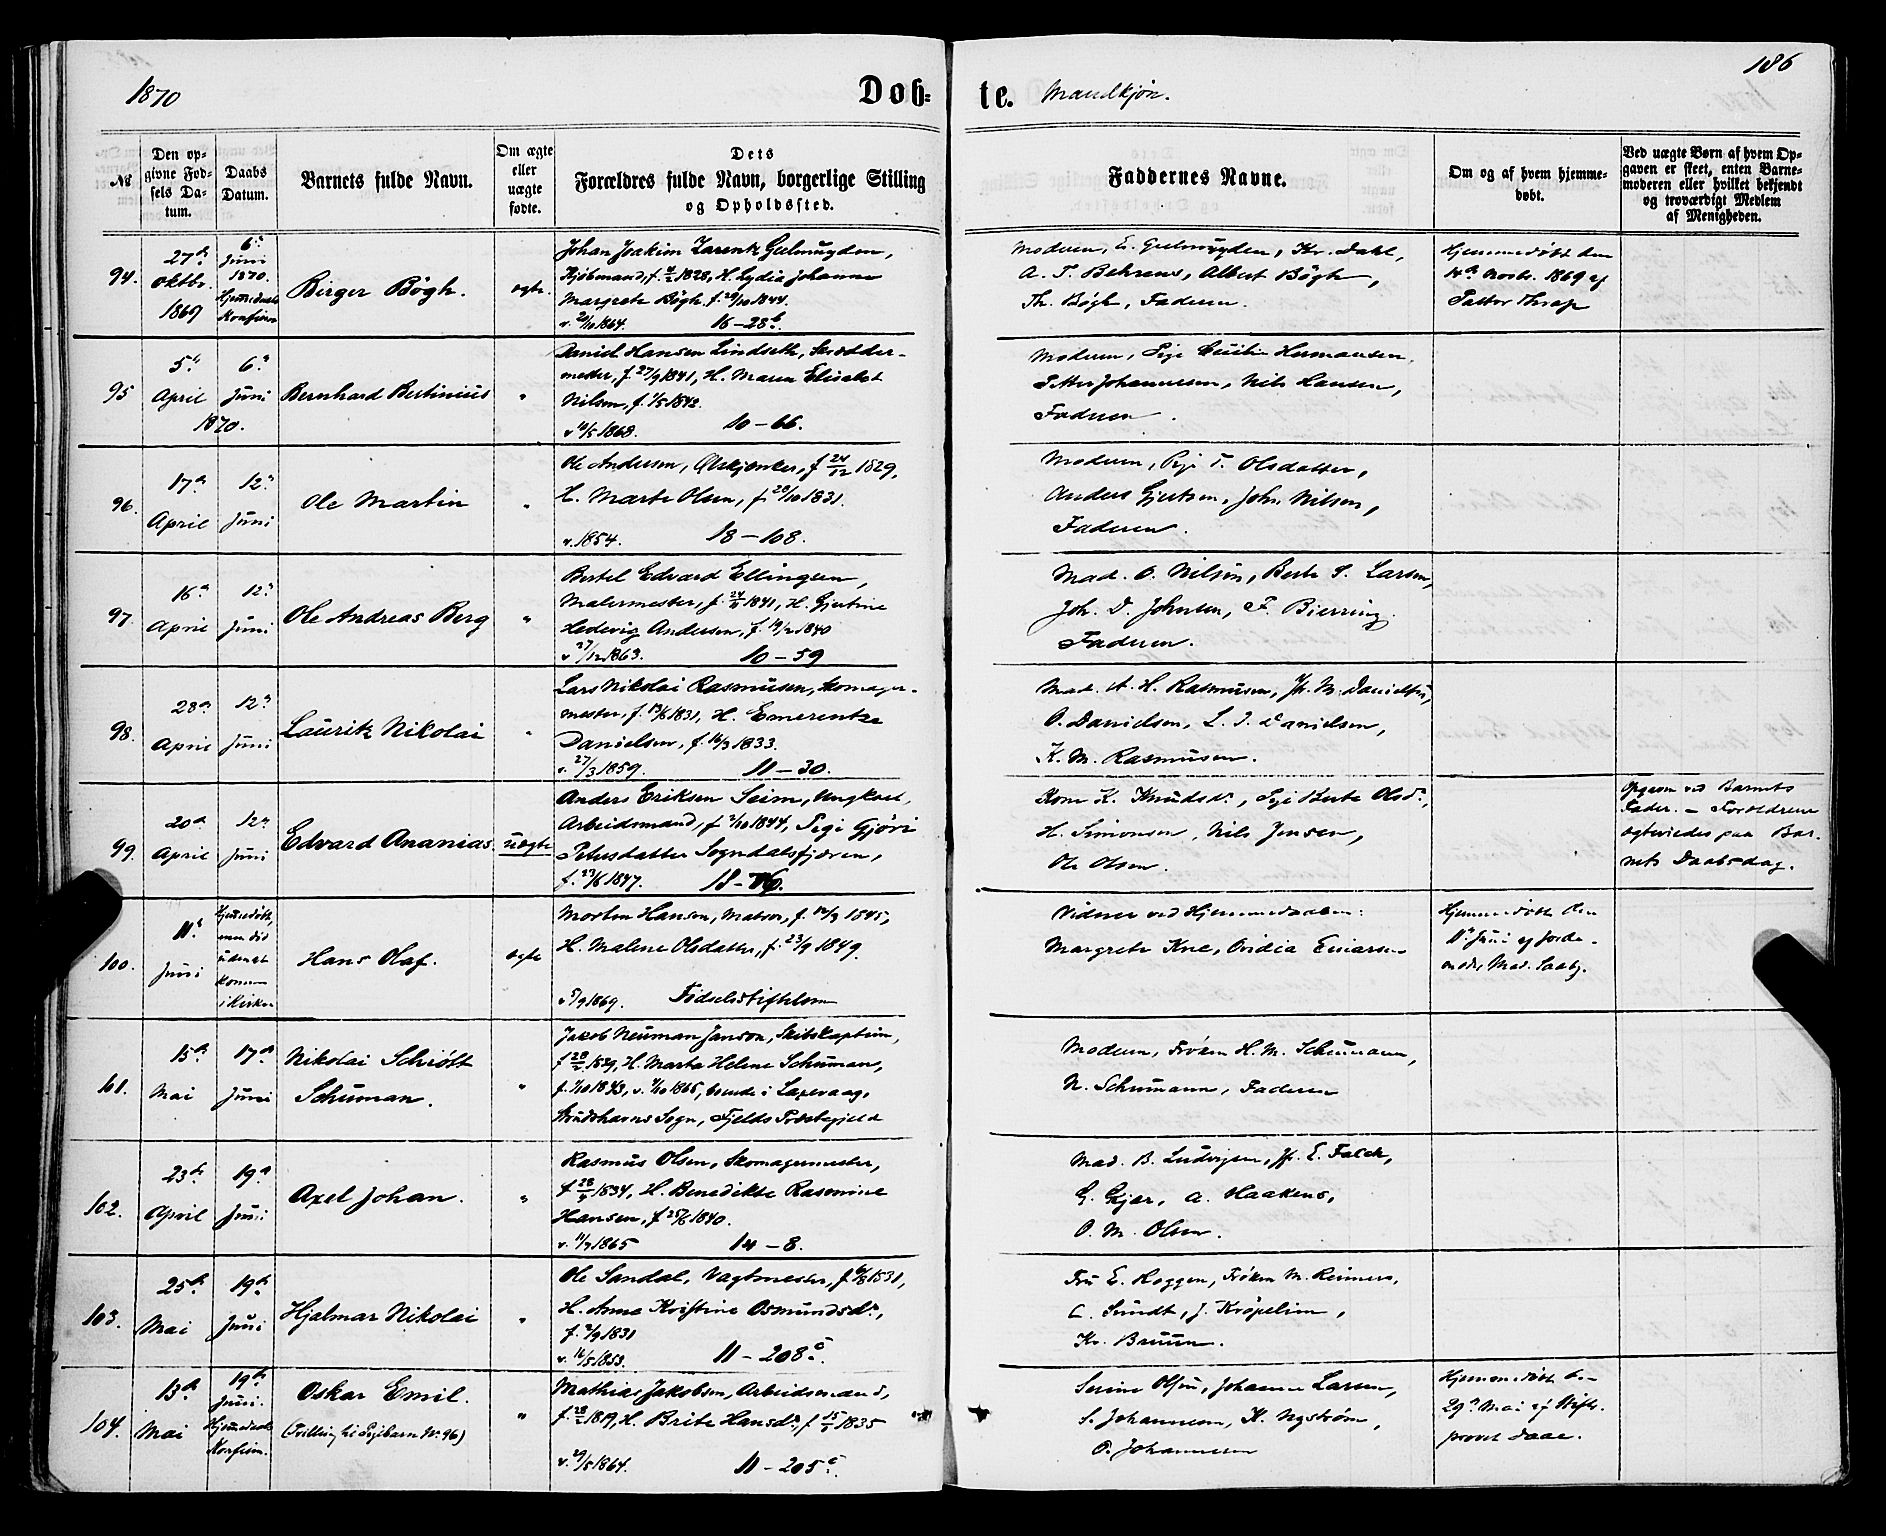 1870
Døb-
te. Mandkjøn.
186
№
Den op-
givne Fød-
sels Da-
tum.
Daabs
Datum.
Barnets fulde Navn.
Om ægte
eller
uægte
fødte.
Dets
Forældres fulde Navn, borgerlige Stilling
og Opholdssted.
Faddernes Navne.
Om og af hvem hjemme-
døbt.
Ved uægte Børn af hvem Op-
gaven er skeet, enten Barne-
moderen eller hvilket bekjendt
og troværdigt Medlem
af Menigheden.
94.
27de
Oktbr.
1869
6te
Juni
1870.
Birger Bøgh.
ægte
Johan Joakim Larentz Geelmuyden,
Kjøbmand, H. Lydia Johanna
Margrete Bøgh, f. 28/10 1844.
v. 20/10 1864. 16-28b.
Moderen, E. Geelmuyden, Kr. Dahl,
A. T. Behrens, Albert Bøgh,
Th. Bøgh, Faderen.
Hjemmedøbt den
14de Novbr. 1869 af
Pastor Thrap
95
5te
April
6te
Juni
1870.
Bernhard Bertinius
"
Daniel Hansen Lindseth, Skrædder-
mester, f. 27/9 1841, H. Maren Elisabet
Nilsen, f. 1/5 1842.
1868. 10-66.
Moderen, Pige Cecilie Hermansen,
Petter Johannesen, Nils Hansen,
Faderen.
96.
17de
April
12te
Juni
Ole Martin
"
Ole Andersen, Ølskjænker, f. 24/12 1829,
H. Marte Olsen, f. 28/10 1831.
v. 1854. 18-108.
Moderen, Pige T. Olsdatter,
Anders Gjertsen, Joh. Nilsen,
Faderen.
97.
16de
April
12te
Juni
Ole Andreas Berg
"
Bertel Edvard Ellingsen,
Malermester, 1841, H. Gjertine
Hedevig Andersen, f. 19/2 1840
v. 27/12 1863. 10-59
Mad. O. Nilsen, Berte S. Larsen,
Joh. D. Johnsen, F. Bierring,
Faderen.
98.
28de
April
12te
Juni
Lauritz Nikolai
"
Lars Nikolai Rasmusen, Skomager-
mester, f. 13/6 1831, H. Emerentze
Danielsen, f. 16/3 1833.
v. 27/3 1859. 11-30.
Mad. A. H. Rasmusen, Jfr. M. Danielsen,
O. Danielsen, L. J. Danielsen,
K. M. Rasmusen.
99.
20de
April
12te
Juni
Edvard Ananias.
uægte
Anders Eriksen Seim, Ungkarl,
Arbeidsmand, 1844, Pige Gjøri
Petersdatter Sogndalsfjæren,
f. 23/6 1847. 18-76.
Kone K. Knudsdr., Pige Berte Olsdr.,
H. Simonsen, Nils Jensen,
Ole Olsen.
Opgiven ved Barnets
Fader. - Forældrene
ægteviedes paa Bar-
nets Daabsdag.
100.
11te
Juni
Hjemmedøbt,
men død
uden at
komme
i Kirken
Hans Olaf.
ægte
Morten Hansen, Matros, 1845,
H. Malene Olsdatter, f. 23/9 1849.
v. 5/9 1869. Fødselsstiftelsen
Vidner ved Hjemmedaaben:
Margrete Kne, Ovidia Einarsen
Hjemmedøbt den
11te Juni af Jorde-
moder, Mad. Saaby.
101.
15de
Mai
17de
Juni
Nikolai Schiøtt
Schuman.
"
Jakob Neuman Janson, Skibskaptein,
1839, H. Marta Helene Schuman,
1843, 1865, boende i Laxevaag,
Strudshavns Sogn, Fjelds Præstegjeld
Moderen, Frøken H. M. Schumann,
N. Schumann, Faderen
102.
23de
April
19de
Juni
Axel Johan.
"
Rasmus Olsen, Skomagermester,
1834, H. Benedikte Rasmine
Hansen, f. 25/6 1840.
v. 11/7 1865 14-8.
Mad. B. Ludvigsen, Jfr. E. Falck,
G. Gjør, A. Haakens,
O. M. Olsen.
103.
25de
Mai
19de
Juni
Hjalmar Nikolai
"
Ole Sandal, Vagtmester, 1831,
H. Anne Kristine Osmundsdr.,
f. 2/9 1831
v. 16/5 1853. 11-208c.
Fru E. Roggen, Frøken M. Reimers,
C. Sundt, J. Krøpelien,
Kr. Bruun.
104.
13de
Mai
19de
Juni.
Oskar Emil.
(Tvilling til Pigebarn No. 96)
"
Mathias Jakobsen, Arbeidsmand,
1819, H. Brite Hansdr., 1835
v. 29/5 1864. 11-205c.
Serine Olsen, Johanne Larsen,
S. Johannesen, K. Nystrøm,
O. Johannesen
Hjemmedøbt den
29de Mai af Stifts-
provst Daae.